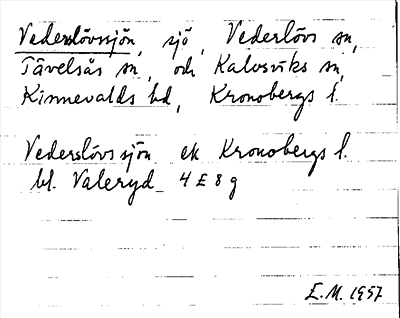 Vederslövssjön, sjö, Vederslövs sn,
Tävelsås sn, och Kalvsviks sn,
Kinnevalds hd, Kronobergs l.
Vederslövssjön ek Kronobergs l.
bl. Valeryd 4 E 8 g
E.M. 1957